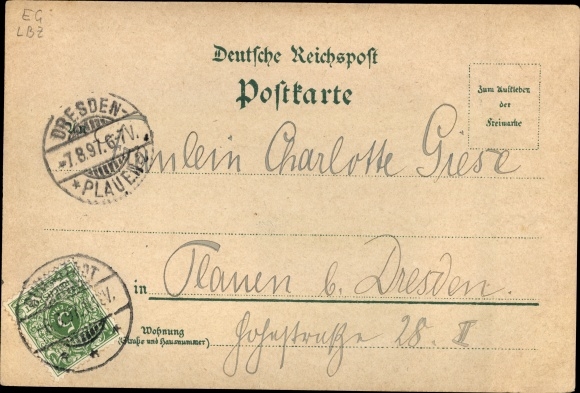 EG
LBZ
Deutsche Reichspost
Postkarte
Zum Aufkleben
der
Freimarke
DRESDEN-
7.8.97. 6-7V.
* PLAUEN
Fräulein Charlotte Giese
in Plauen b. Dresden.
Wohnung
(Straße und Hausnummer)
Hohestraße 28. II
5